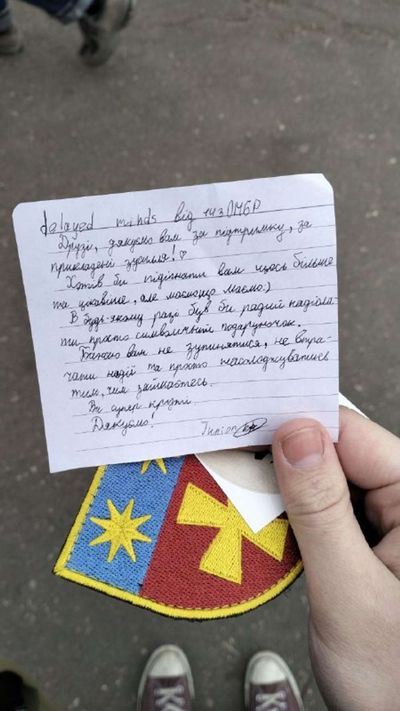 delayed minds від 143 ОМБР
Друзі, дякуємо вам за підтримку, за
прикладені зусилля! ♡
Хотів би підігнати вам щось більше
та цікавіше, але маємо що маємо:)
В будь-якому разі був би радий надісла-
ти просто символічний подаруночок.
Бажаю вам не зупинятися, не втра-
чати надій та просто насолоджуватись
тим, чим займаєтесь.
Ви супер круті.
Дякуємо.
Junior